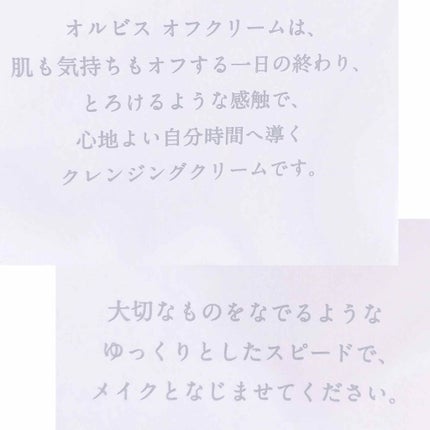 オルビス オフクリームは、
肌も気持ちもオフする一日の終わり、
とろけるような感触で、
心地よい自分時間へ導く
クレンジングクリームです。
大切なものをなでるような
ゆっくりとしたスピードで、
メイクとなじませてください。